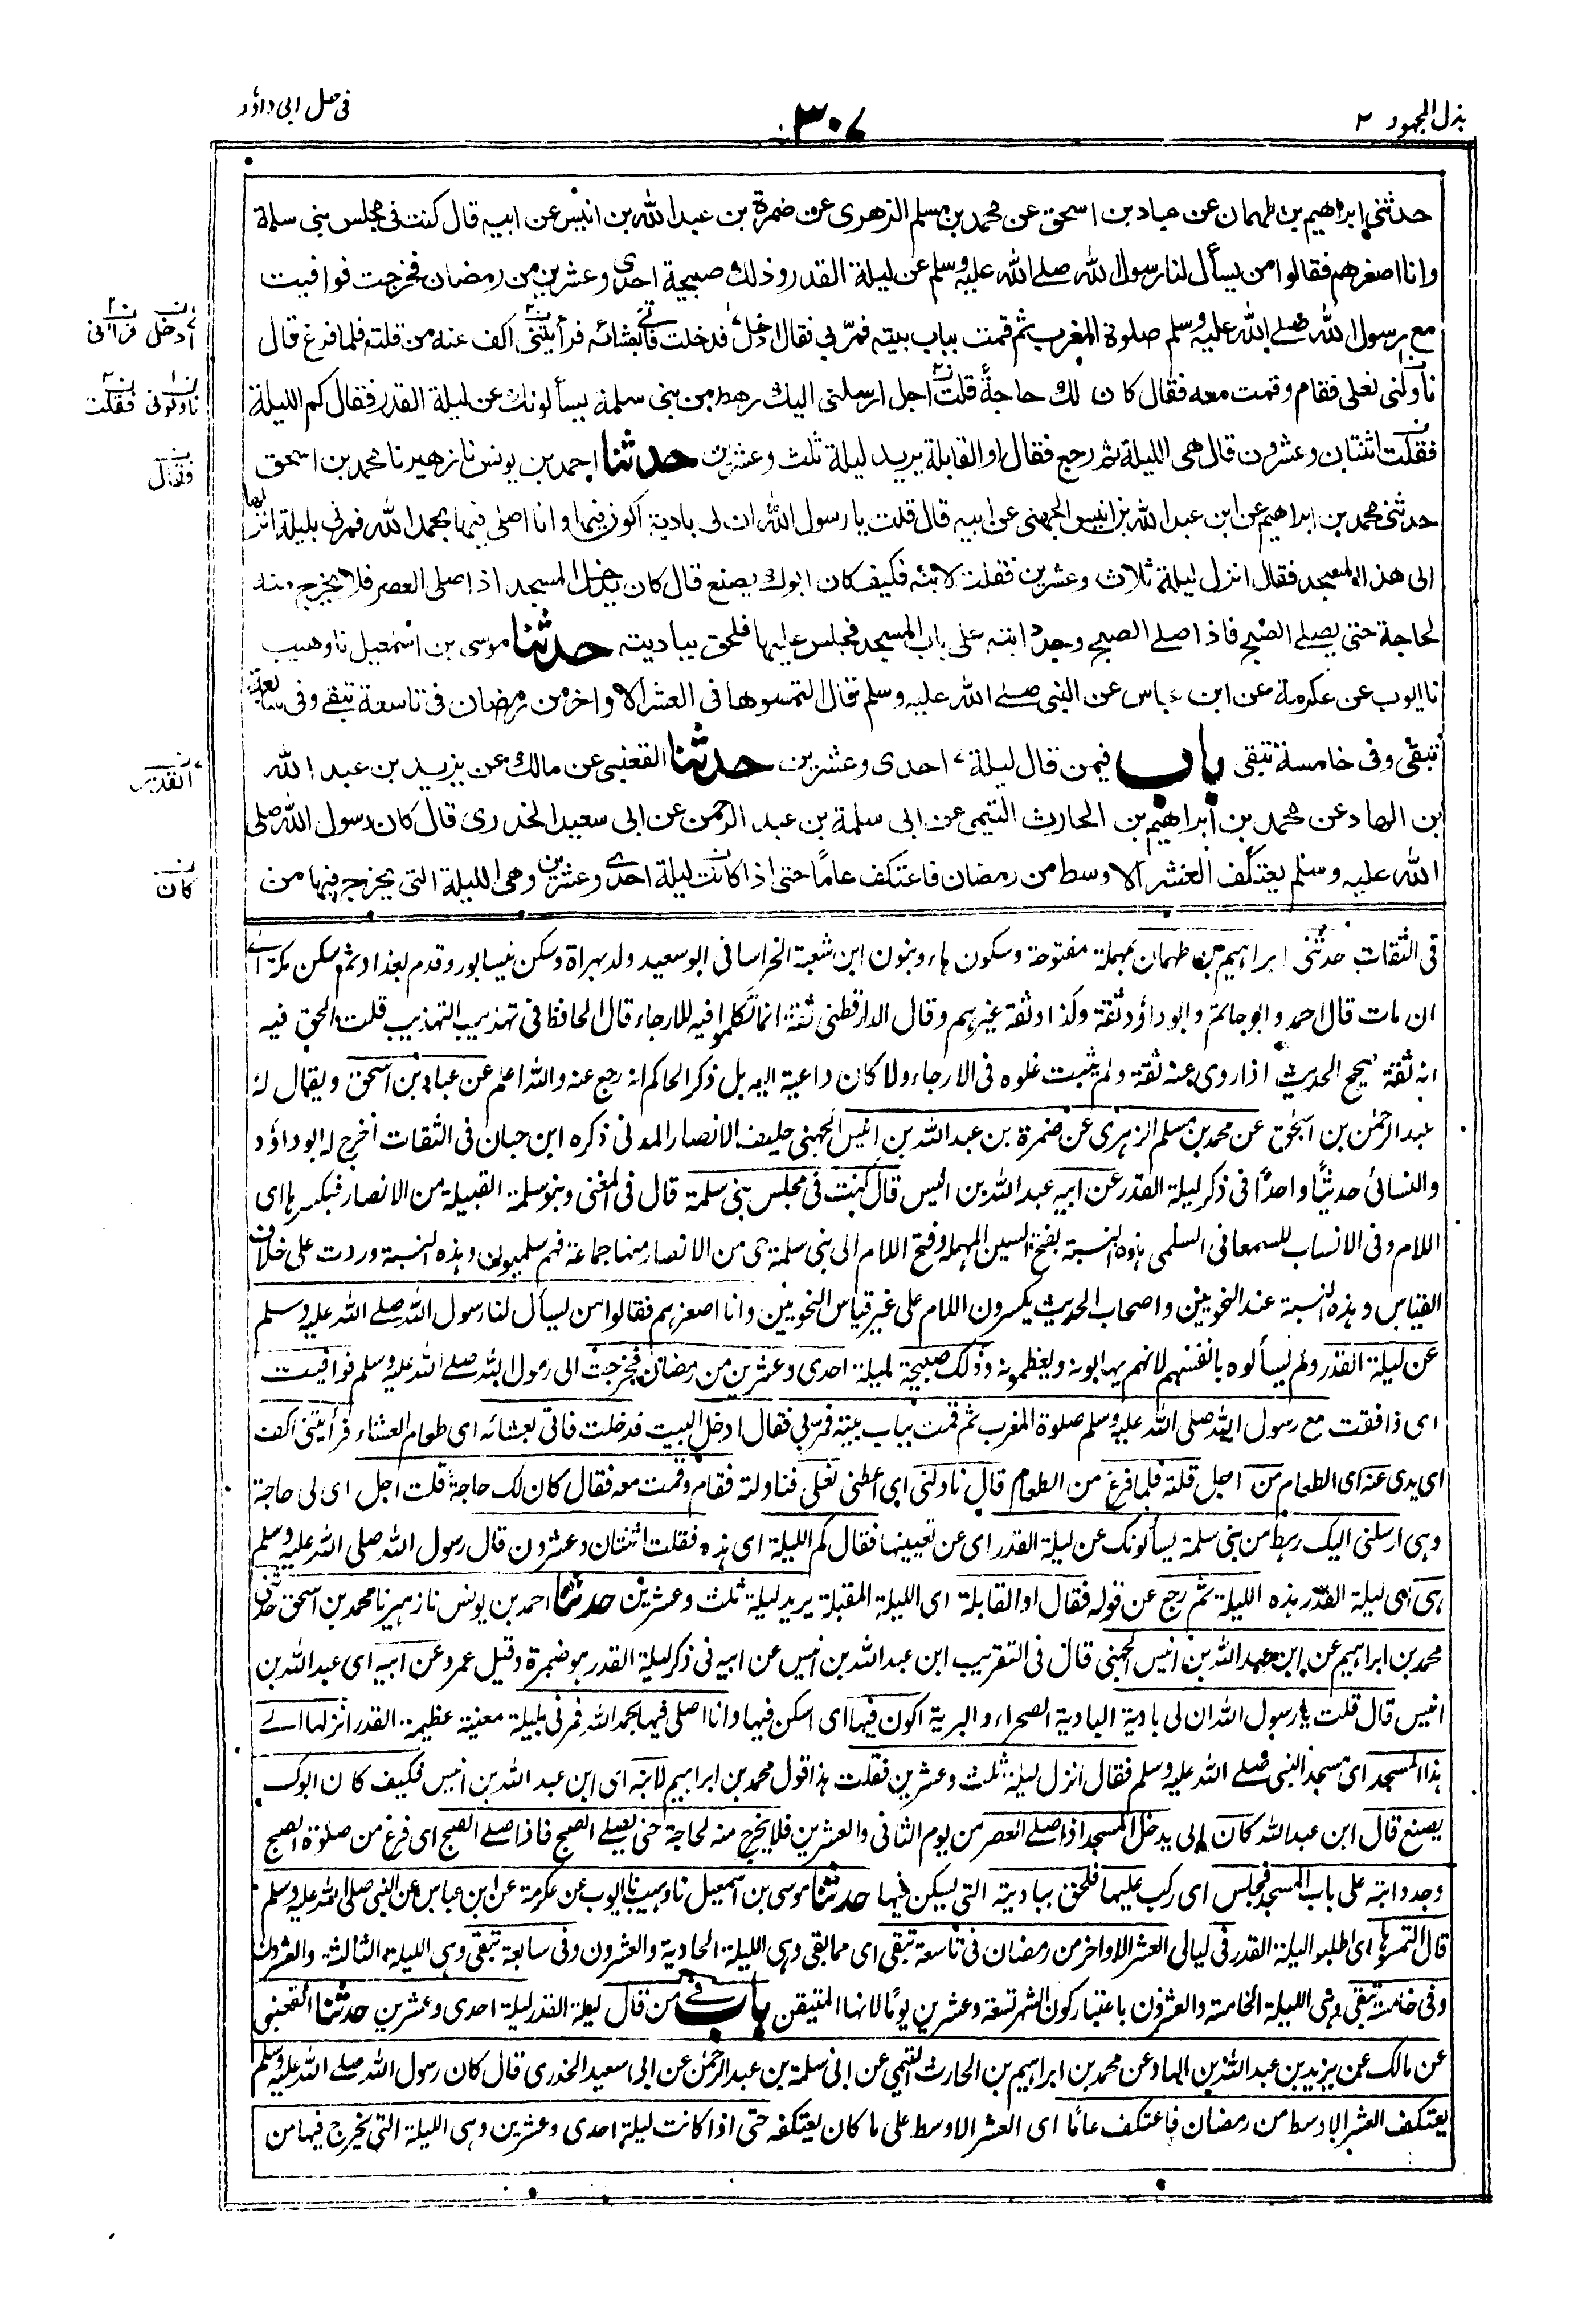 بذل المجهود ٣
٣٠٧
فى حل ابى داؤد
حدثنى ابراهيم بن طهمان عن عباد بن اسحق عن محمد بن مسلم الزهرى عن ضمرة بن عبد الله بن انيس عن ابيه قال كنت فى مجلس بنى سلمة
وانا اصغرهم فقالوا من يسأل لنا رسول الله صلى الله عليه وسلم عن ليلة القدر وذلك صبيحة احدى وعشرين من رمضان فخرجت فوافيت
مع رسول الله صلى الله عليه وسلم صلوة المغرب ثم قمت بباب بيته فمر بى فقال ادخل فدخلت فأتى بعشائه فرأيتنى اكف عنه من قلته فلما فرغ قال
ناولنى نعلى فقام وقمت معه فقال كان لك حاجة قلت اجل ارسلنى اليك رهط من بنى سلمة يسألونك عن ليلة القدر فقال كم الليلة
فقلت اثنتان وعشرون قال هى الليلة ثم رجع فقال او القابلة يريد ليلة ثلث وعشرين حدثنا احمد بن يونس نا زهير نا محمد بن اسحق
حدثنى محمد بن ابراهيم عن ابن عبد الله بن انيس الجهنى عن ابيه قال قلت يا رسول الله ان لى بادية اكون فيها وانا اصلى فيها بحمد الله فمرنى بليلة انزلها
الى هذا المسجد فقال انزل ليلة ثلاث وعشرين فقلت لابنه فكيف كان ابوك يصنع قال كان يدخل المسجد اذا صلى العصر فلا يخرج منه
لحاجة حتى يصلى الصبح فاذا صلى الصبح وجد دابته على باب المسجد فجلس عليها فلحق بباديته حدثنا موسى بن اسمعيل نا وهيب
نا ايوب عن عكرمة عن ابن عباس عن النبى صلى الله عليه وسلم قال التمسوها فى العشر الاواخر من رمضان فى تاسعة تبقى وفى سابعة
تبقى وفى خامسة تبقى باب فيمن قال ليلة احدى وعشرين حدثنا القعنبى عن مالك عن يزيد بن عبد الله
ابن الهاد عن محمد بن ابراهيم بن الحارث التيمى عن ابى سلمة بن عبد الرحمن عن ابى سعيد الخدرى قال كان رسول الله صلى
الله عليه وسلم يعتكف العشر الاوسط من رمضان فاعتكف عاما حتى اذا كانت ليلة احدى وعشرين وهى الليلة التى يخرج فيها من
ادخل فرآنى
ناولونى فقلت
وقال
القدر
كان
فى الثقات حدثنى ابراهيم بن طهمان بمهملة مفتوحة وسكون هاء وبنون ابن شعبة الخراسانى ابو سعيد ولد بهراة وسكن نيسابور وقدم بغداد ثم سكن مكة الى
ان مات قال احمد وابو حاتم وابو داؤد ثقة وكذا وثقه غيرهم وقال الدارقطنى ثقة انما تكلموا فيه للارجاء قال الحافظ فى تهذيب التهذيب قلت الحق فيه
انه ثقة صحيح الحديث اذا روى عنه ثقة ولم يثبت غلوه فى الارجاء ولا كان داعية اليه بل ذكر الحاكم انه رجع عنه والله اعلم عن عباد بن اسحق ويقال له
عبد الرحمن بن اسحق عن محمد بن مسلم الزهرى عن ضمرة بن عبد الله بن انيس الجهنى حليف الانصار المدنى ذكره ابن حبان فى الثقات أخرج له ابو داؤد
والنسائى حديثا واحدا فى ذكر ليلة القدر عن ابيه عبد الله بن انيس قال كنت فى مجلس بنى سلمة قال فى المغنى وبنو سلمة القبيلة من الانصار فبكسرها اى
اللام وفى الانساب للسمعانى السلمى هذه النسبة بفتح السين المهملة وفتح اللام الى بنى سلمة حى من الانصار منها جماعة فهم سلميون وهذه النسبة وردت على خلاف
القياس وهذه النسبة عند النحويين واصحاب الحديث يكسرون اللام على غير قياس النحويين وانا اصغرهم فقالوا من يسأل لنا رسول الله صلى الله عليه وسلم
عن ليلة القدر ولم يسألوه بانفسهم لانهم يهابونه ويعظمونه وذلك صبيحة ليلة احدى وعشرين من رمضان فخرجت الى رسول الله صلى الله عليه وسلم فوافيت
اى وافقت مع رسول الله صلى الله عليه وسلم صلوة المغرب ثم قمت بباب بيته فمر بى فقال ادخل البيت فدخلت فاتى بعشائه اى طعام العشاء فرأيتنى اكف
اى يدى عنه اى الطعام من اجل قلته فلما فرغ من الطعام قال ناولنى اى اعطنى نعلى فناولته فقام وقمت معه فقال كان لك حاجة قلت اجل اى لى حاجة
وهى ارسلنى اليك رهط من بنى سلمة يسألونك عن ليلة القدر اى عن تعيينها فقال كم الليلة اى هذه فقلت اثنتان وعشرون قال رسول الله صلى الله عليه وسلم
هى اى ليلة القدر هذه الليلة ثم رجع عن قوله فقال او القابلة اى الليلة المقبلة يريد ليلة ثلث وعشرين حدثنا احمد بن يونس نا زهير نا محمد بن اسحق حدثنى
محمد بن ابراهيم عن ابن عبد الله بن انيس الجهنى قال فى التقريب ابن عبد الله بن انيس عن ابيه فى ذكر ليلة القدر هو ضمرة وقيل عمرو عن ابيه اى عبد الله بن
انيس قال قلت يا رسول الله ان لى بادية البادية الصحراء والبرية اكون فيها اى اسكن فيها وانا اصلى فيها بحمد الله فمرنى بليلة معينة عظيمة القدر انزلها الى
هذا المسجد اى مسجد النبى صلى الله عليه وسلم فقال انزل ليلة ثلث وعشرين فقلت هذا قول محمد بن ابراهيم لابنه اى ابن عبد الله بن انيس فكيف كان ابوك
يصنع قال ابن عبد الله كان ابى يدخل المسجد اذا صلى العصر من يوم الثانى والعشرين فلا يخرج منه لحاجة حتى يصلى الصبح فاذا صلى الصبح اى فرغ من صلوة الصبح
وجد دابته على باب المسجد فجلس اى ركب عليها فلحق بباديته التى يسكن فيها حدثنا موسى بن اسمعيل نا وهيب نا ايوب عن عكرمة عن ابن عباس عن النبى صلى الله عليه وسلم
قال التمسوها اى اطلبوا ليلة القدر فى ليالى العشر الاواخر من رمضان فى تاسعة تبقى اى مما بقى وهى الليلة الحادية والعشرون وفى سابعة تبقى وهى الليلة الثالثة والعشرون
وفى خامسة تبقى وهى الليلة الخامسة والعشرون باعتبار كون الشهر تسعة وعشرين يوما لانها المتيقن باب فى من قال ليلة القدر ليلة احدى وعشرين حدثنا القعنبى
عن مالك عن يزيد بن عبد الله بن الهاد عن محمد بن ابراهيم بن الحارث التيمى عن ابى سلمة بن عبد الرحمن عن ابى سعيد الخدرى قال كان رسول الله صلى الله عليه وسلم
يعتكف العشر الاوسط من رمضان فاعتكف عاما اى العشر الاوسط على ما كان يعتكفه حتى اذا كانت ليلة احدى وعشرين وهى الليلة التى يخرج فيها من